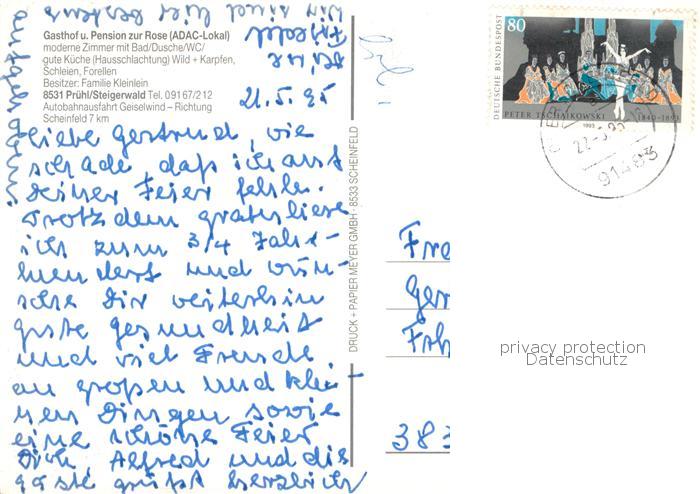 Gasthof u. Pension zur Rose (ADAC-Lokal)
moderne Zimmer mit Bad/Dusche/WC/
gute Küche (Hausschlachtung) Wild + Karpfen,
Schleien, Forellen
Besitzer: Familie Kleinlein
8531 Prühl/Steigerwald Tel. 09167/212
Autobahnausfahrt Geiselwind – Richtung
Scheinfeld 7 km
21.5.95
Liebe Gertrud, wie
schade, daß ich auf
Deiner Feier fehle.
Trotzdem gratuliere
ich zum 3/4 Jahr-
hundert und wün-
sche Dir weiterhin
gute Gesundheit
und viel Freude
an großen und klei-
nen Dingen sowie
eine schöne Feier
Dich, Alfred und die
Gäste grüßt herzlich
Wir sind hier bestens
aufgehoben.
DRUCK + PAPIER MEYER GMBH · 8533 SCHEINFELD
DEUTSCHE BUNDESPOST
80
PETER TSCHAIKOWSKI 1840-1893
1993
91483
Fra
Ger
383
privacy protection
Datenschutz